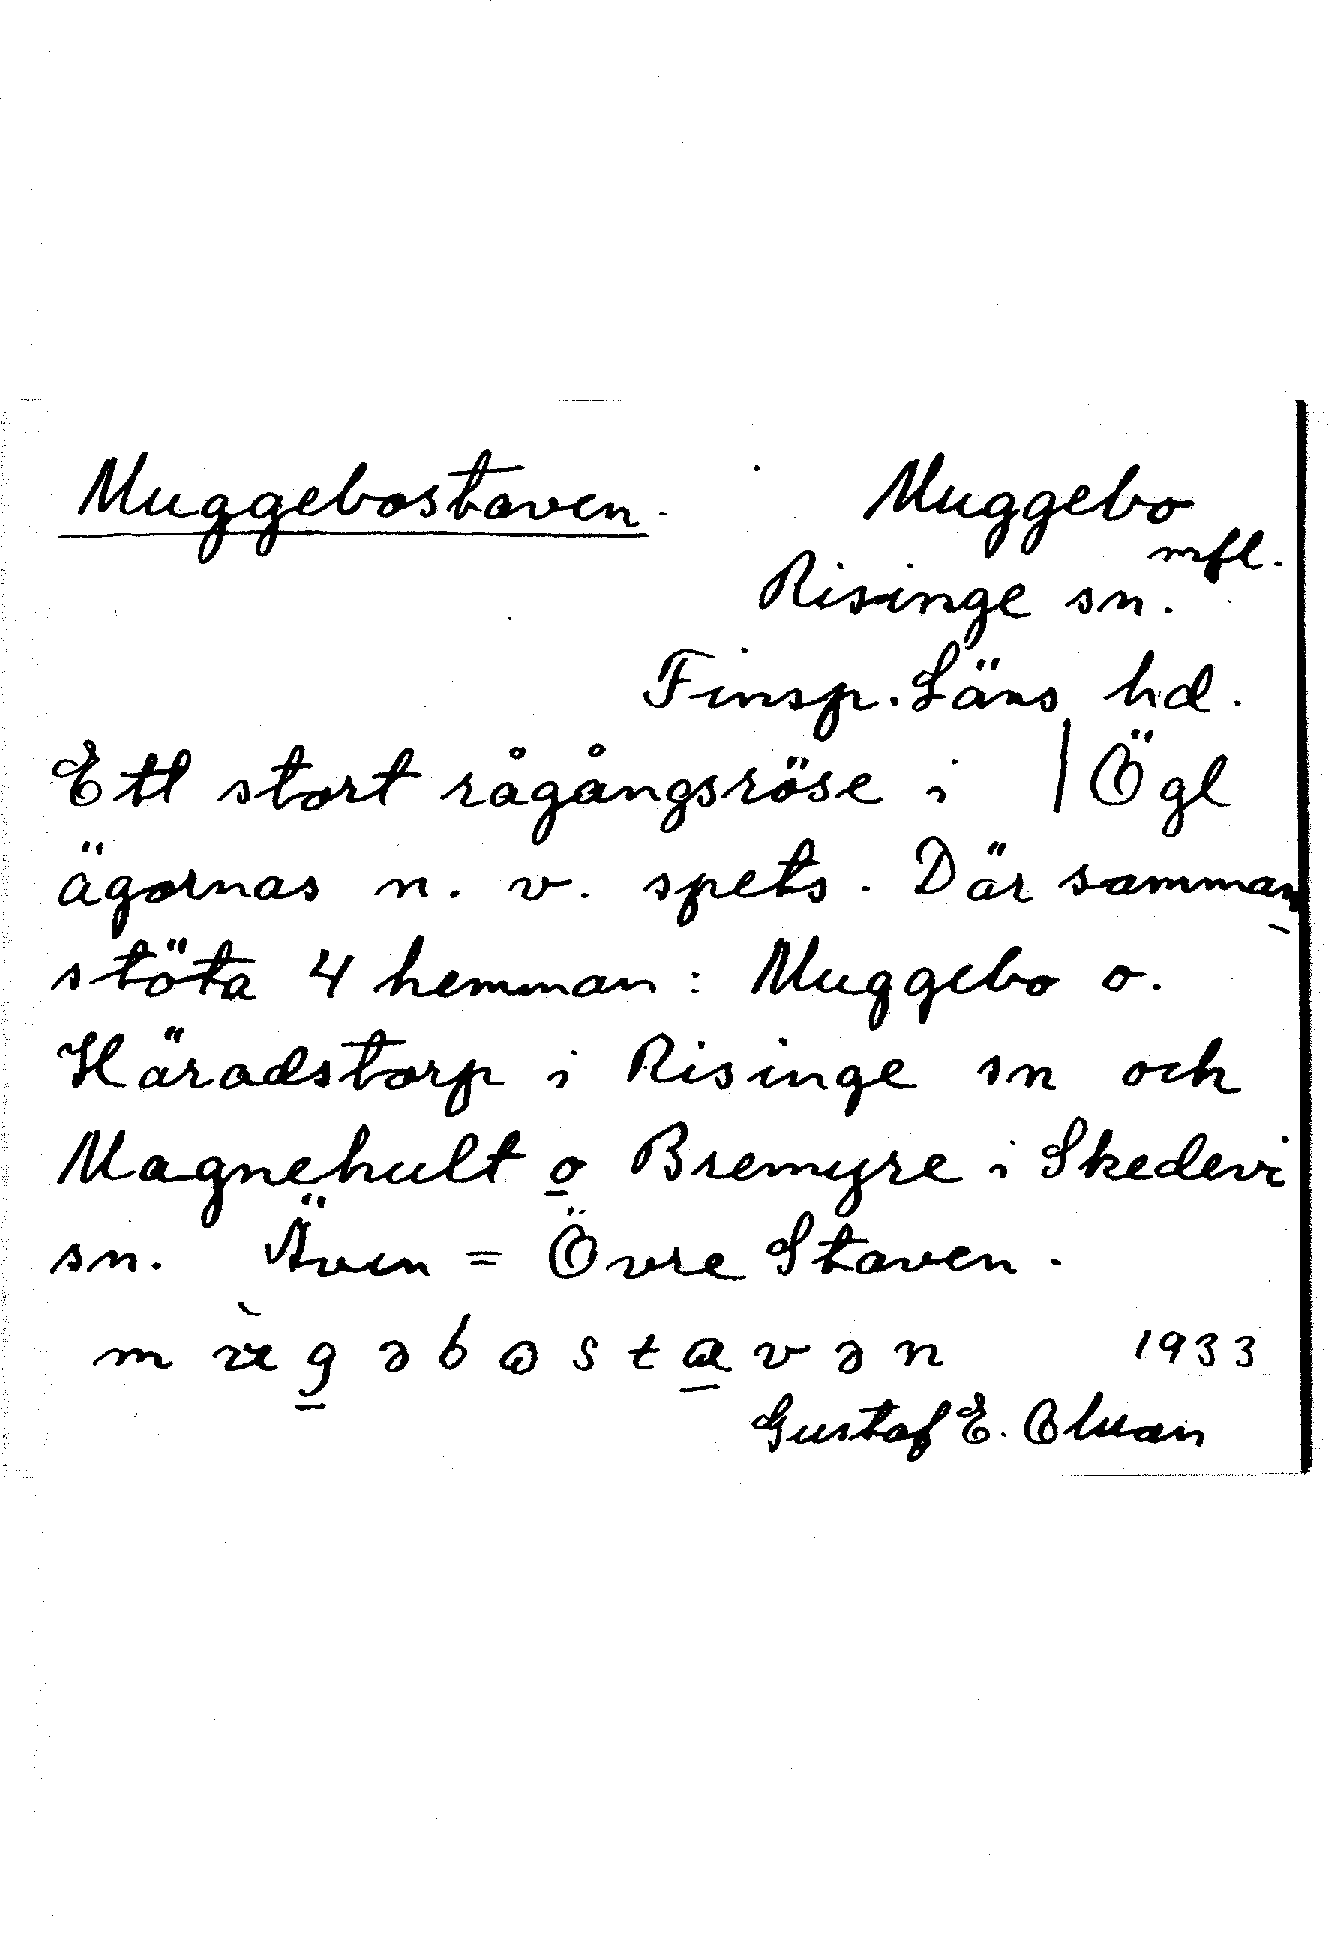 Muggebostaven. Muggebo
mfl.
Risinge sn.
Finsp. Läns hd.
Ett stort rågångsröse i | Ögl
ägornas n. v. spets. Där samman-
stöta 4 hemman: Muggebo o.
Häradstorp i Risinge sn och
Magnehult o Bremyre i Skedevi
sn. Även = Övre Staven.
1933
Gustaf E.